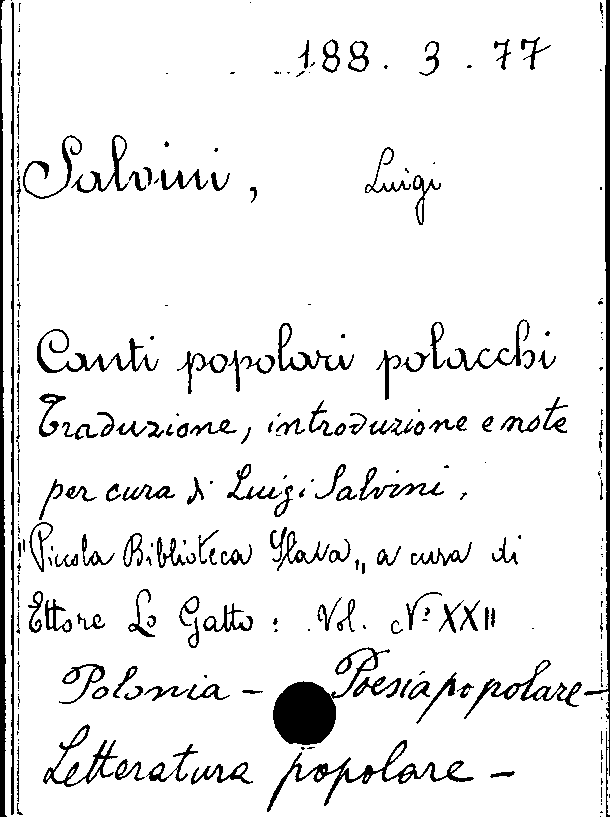 188. 3. 77
Salvini, Luigi
Canti popolari polacchi
Traduzione, introduzione e note
per cura di Luigi Salvini.
"Piccola Biblioteca Slava" a cura di
Ettore Lo Gatto: Vol. Nº XXII
Polonia - Poesia popolare -
Letteratura popolare -